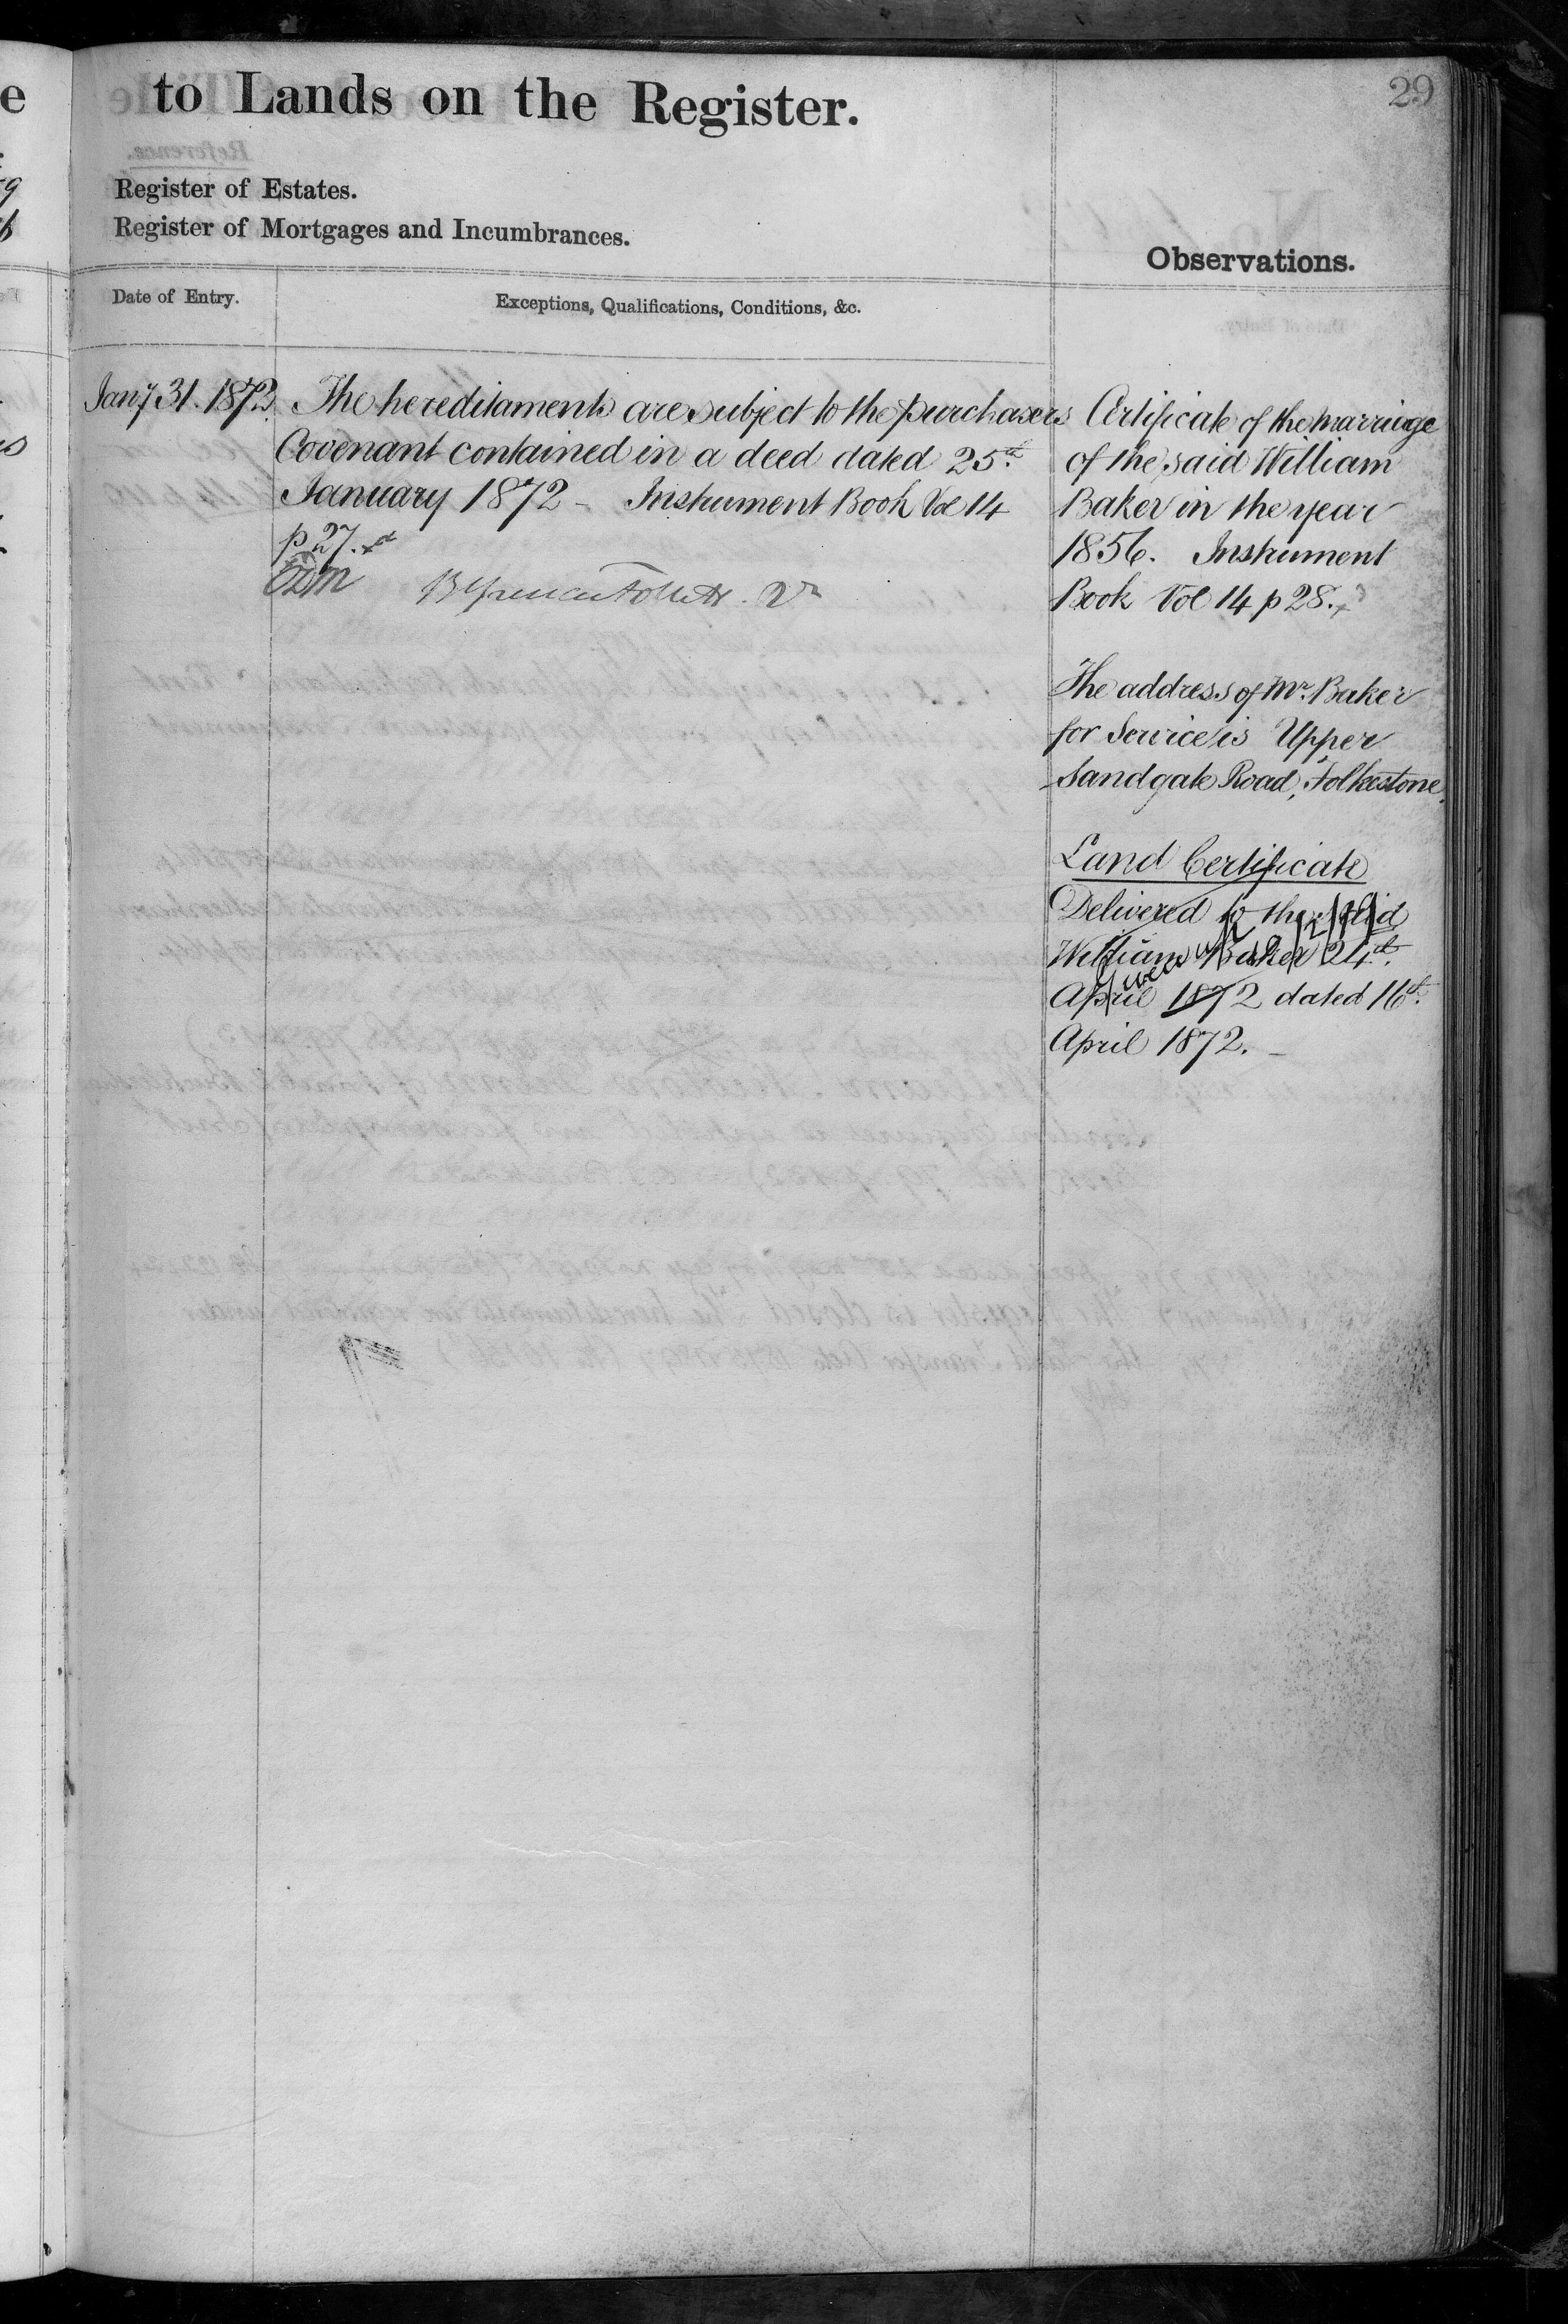 to Lands on the Register.
29
Register of Estates.
Register of Mortgages and Incumbrances.
Observations.
Date of Entry.
Exceptions, Qualifications, Conditions, &c.
Jany 31. 1872
The hereditaments are subject to the purchasers
Covenant contained in a deed dated 25th
January 1872 - Instrument Book Vol 14
p 27.
Certificate of the marriage
of the said William
Baker in the year
1856. Instrument
Book Vol 14 p 28.
The address of Mr. Baker
for Service is Upper
Sandgate Road, Folkestone.
Land Certificate
Delivered to the said
William Baker 24th
April 1872 dated 16th
April 1872. -